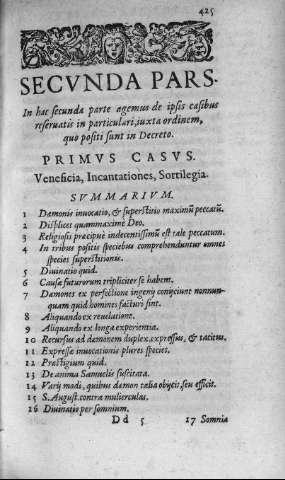 425
SECVNDA PARS.
In hac secunda parte agemus de ipsis casibus
reseruatis in particulari, iuxta ordinem,
quo positi sunt in Decreto.
PRIMVS CASVS.
Veneficia, Incantationes, Sortilegia.
SVMMARIVM.
1 Dæmonis inuocatio, & superstitio maximũ peccatũ.
2 Displicet quammaxime Deo.
3 Religiosis præcipuè indecentissimũ est tale peccatum.
4 In tribus positis speciebus comprehenduntur omnes
species superstitionis.
5 Diuinatio quid.
6 Causæ futurorum tripliciter se habent.
7 Dæmones ex perfectione ingenij conijciunt nonnun-
quam quid homines facturi sint.
8 Aliquando ex reuelatione.
9 Aliquando ex longa experientia.
10 Recursus ad dæmonem duplex, expressus, & tacitus.
11 Expressæ inuocationis plures species.
12 Præstigium quid.
13 De anima Samuelis suscitata.
14 Varij modi, quibus dæmon talia obijcit seu efficit.
15 S. August. contra mulierculas.
16 Diuinatio per somnium.
Dd 5 17 Somnia